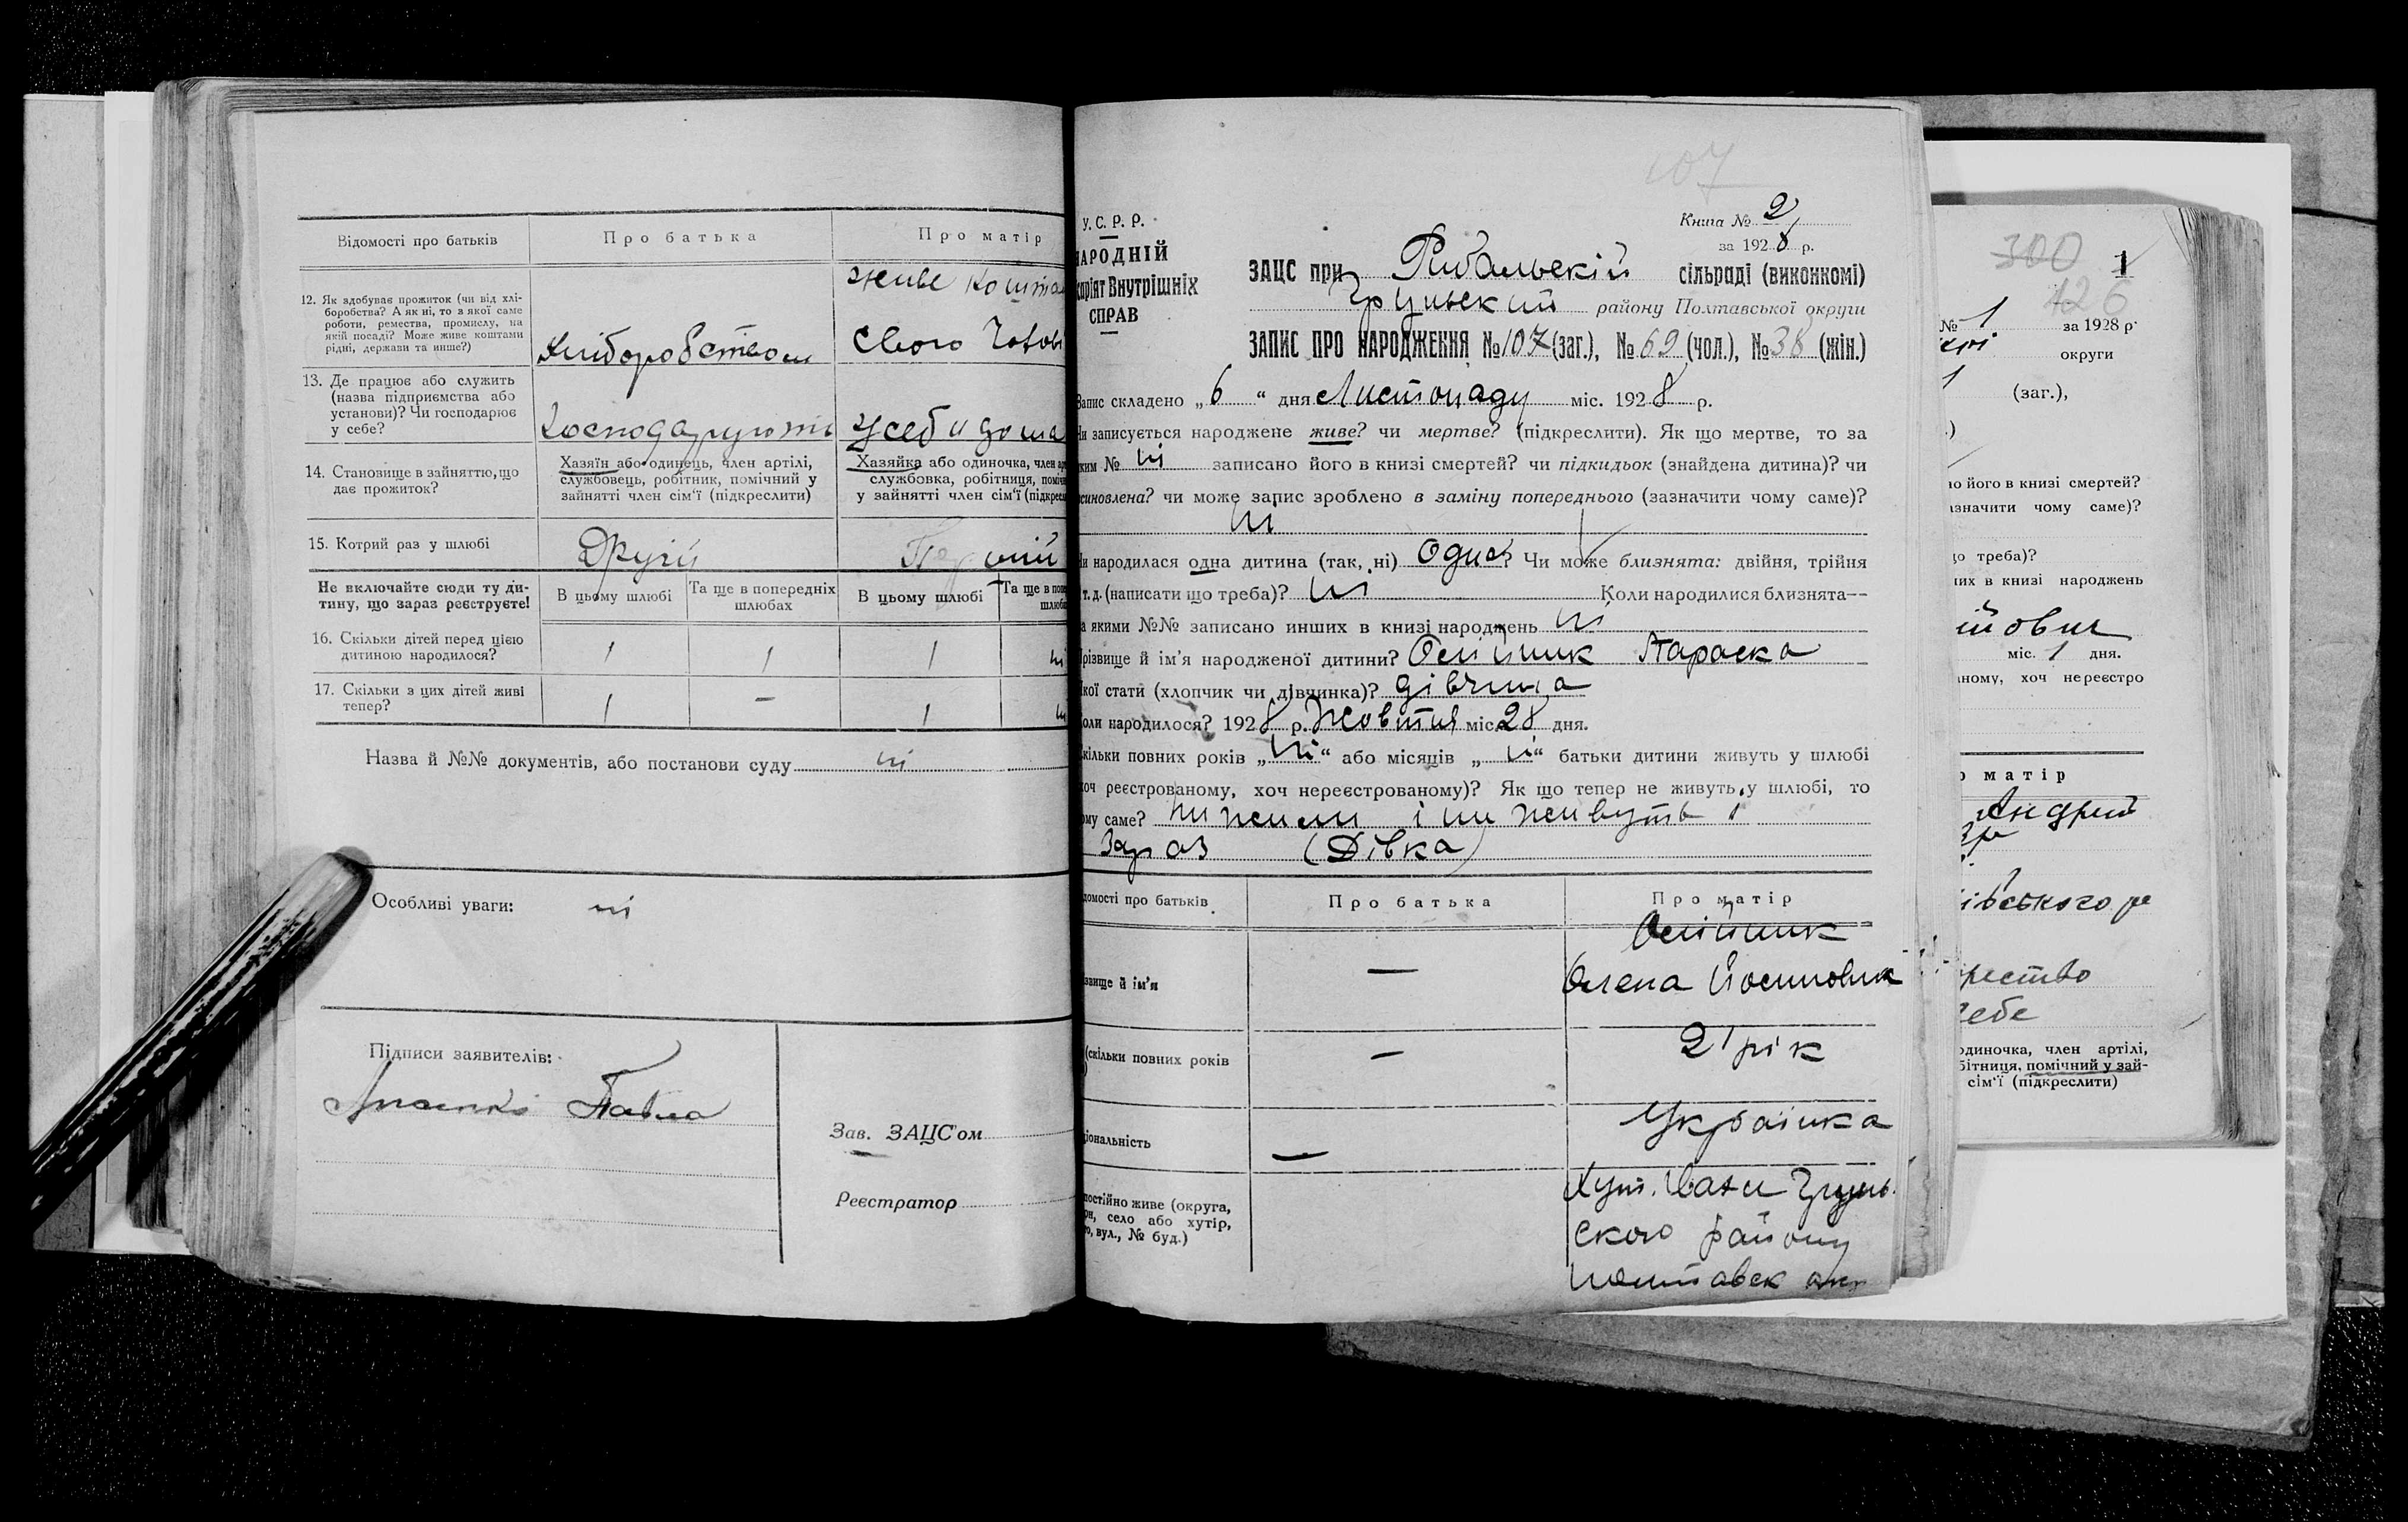 Відомості про батьків
Про батька
Про матір
12. Як здобуває прожиток (чи від хлі-
боробства? А як ні, то з якої саме
роботи, ремества, промислу, на
якій посаді? Може живе коштами
рідні, держави та инше?)
Хліборобством
живе кошта
свого Чолові
13. Де працює або служить
(назва підприємства або
установи)? Чи господарює
у себе?
Господарують
усеби дома
14. Становище в зайняттю, що
дає прожиток?
Хазяїн або одинець, член артілі,
службовець, робітник, помічний у
зайнятті член сім'ї (підкреслити)
Хазяйка або одиночка, член ар
службовка, робітниця, поміч
у зайнятті член сім'ї (підкресл
15. Котрий раз у шлюбі
Другій
Первий
Не включайте сюди ту ди-
тину, що зараз реєструєте!
В цьому шлюбі
Та ще в попередніх
шлюбах
В цьому шлюбі
Та ще в попе
шлюба
16. Скільки дітей перед цією
дитиною народилося?
1 1 1 ні
17. Скільки з цих дітей живі
тепер?
1 — 1 ні
Назва й №№ документів, або постанови суду ні
Особливі уваги: ні
Підписи заявителів:
Павла
Зав. ЗАЦС'ом
Реєстратор
107
У. С. Р. Р.
НАРОДНІЙ
соріят Внутрішніх
СПРАВ
Книга № 2
за 1928 р.
ЗАЦС при Рибальскій сільраді (виконкомі)
Грунський району Полтавської округи
ЗАПИС ПРО НАРОДЖЕННЯ № 107 (заг.), № 69 (чол.), № 38 (жін.)
Запис складено „6" дня Листопаду міс. 1928 р.
Чи записується народжене живе? чи мертве? (підкреслити). Як що мертве, то за
яким № ні записано його в книзі смертей? чи підкидьок (знайдена дитина)? чи
усиновлена? чи може запис зроблено в заміну попереднього (зазначити чому саме)?
ні
Чи народилася одна дитина (так, ні) Одна? Чи може близнята: двійня, трійня
т. д. (написати що треба)? ні Коли народилися близнята—
за якими №№ записано инших в книзі народжень ні
Прізвище й ім'я народженої дитини? Олійник Параска
Якої стати (хлопчик чи дівчинка)? дівчина
Коли народилося? 1928 р. Жовтня міс. 28 дня.
Скільки повних років „ні" або місяців „ні" батьки дитини живуть у шлюбі
хоч реєстрованому, хоч нереєстрованому)? Як що тепер не живуть у шлюбі, то
ому саме? ни жили і ни живуть і
Зараз (Дівка)
домості про батьків
Про батька
Про матір
звище й ім'я
—
Олійник
Олена Йосиповна
(скільки повних років
—
21 рік
ціональність
—
Українка
постійно живе (округа,
он, село або хутір,
о, вул., № буд.)
Хут. Грунь.
ского району
Полтавск окр
300
1
126
№ 1 за 1928 р.
округи
1 (заг.),
ю його в книзі смертей?
азначити чому саме)?
до треба)?
них в книзі народжень
міс. 1 дня.
ному, хоч нереєстро
о матір
івського р
одиночка, член артілі,
бітниця, помічний у зай-
сім'ї (підкреслити)